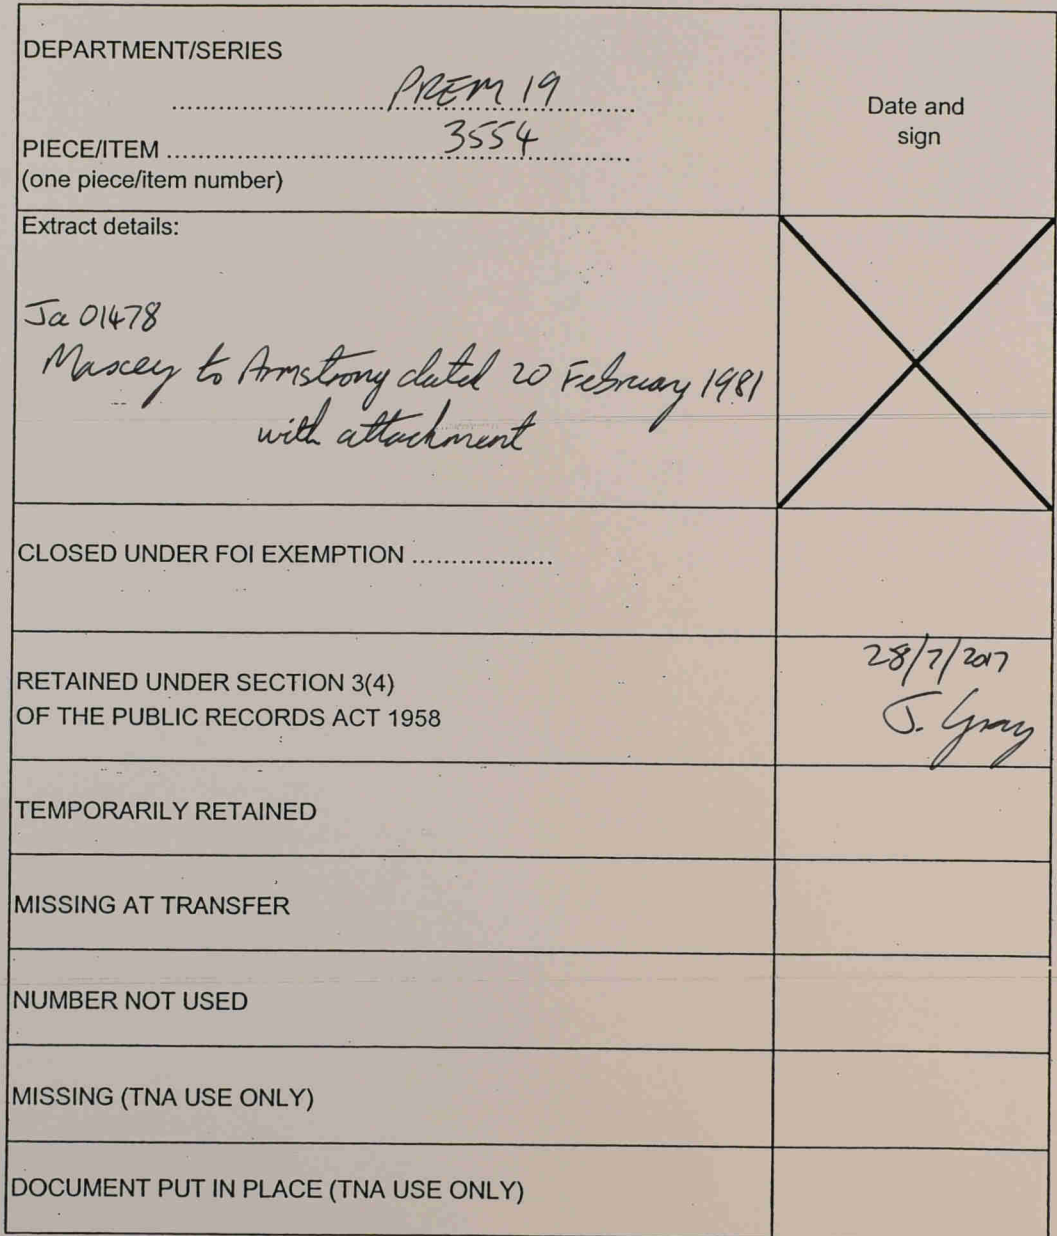 DEPARTMENT/SERIES
PREM 19
Date and
sign
PIECE/ITEM 3554
(one piece/item number)
Extract details:
Ja 01478
Massey to Armstrong dated 20 February 1981
with attachment
CLOSED UNDER FOI EXEMPTION
RETAINED UNDER SECTION 3(4)
OF THE PUBLIC RECORDS ACT 1958
28/7/2017
J. Gray
TEMPORARILY RETAINED
MISSING AT TRANSFER
NUMBER NOT USED
MISSING (TNA USE ONLY)
DOCUMENT PUT IN PLACE (TNA USE ONLY)